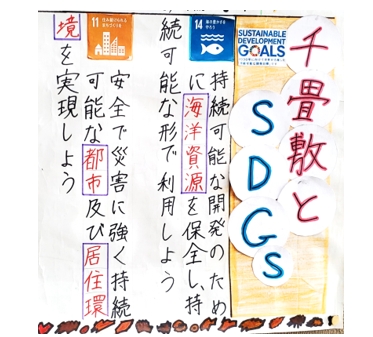 千畳敷と
SDGs
SUSTAINABLE
DEVELOPMENT
GOALS
14
海の豊かさを
守ろう
持続可能な開発のため
に海洋資源を保全し、持
続可能な形で利用しよう
11
住み続けられる
まちづくりを
安全で災害に強く持続
可能な都市及び居住環
境を実現しよう